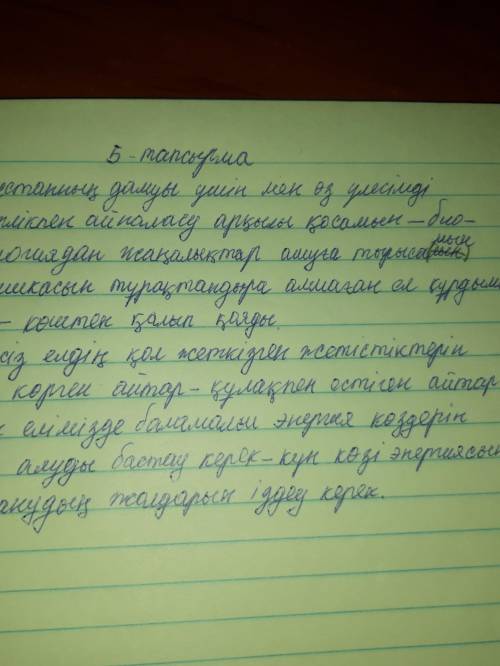 5-тапсырма
станның дамуы үшін мен өз үлесімді
тікпен айналасу арқылы қосамын – био-
логиядан жаңалықтар ашуға тырыса(мын)
шкасын тұрақтандыра алмаған ел құрдым
– көштен қалып қояды.
сіз елдің қол жеткізген жетістіктерін
көрген айтар – құлақпен естіген айтар
елімізде баламалы энергия көздерін
алуды бастау керек – күн көзі энергиясын
анудың жолдарын іздеу керек.